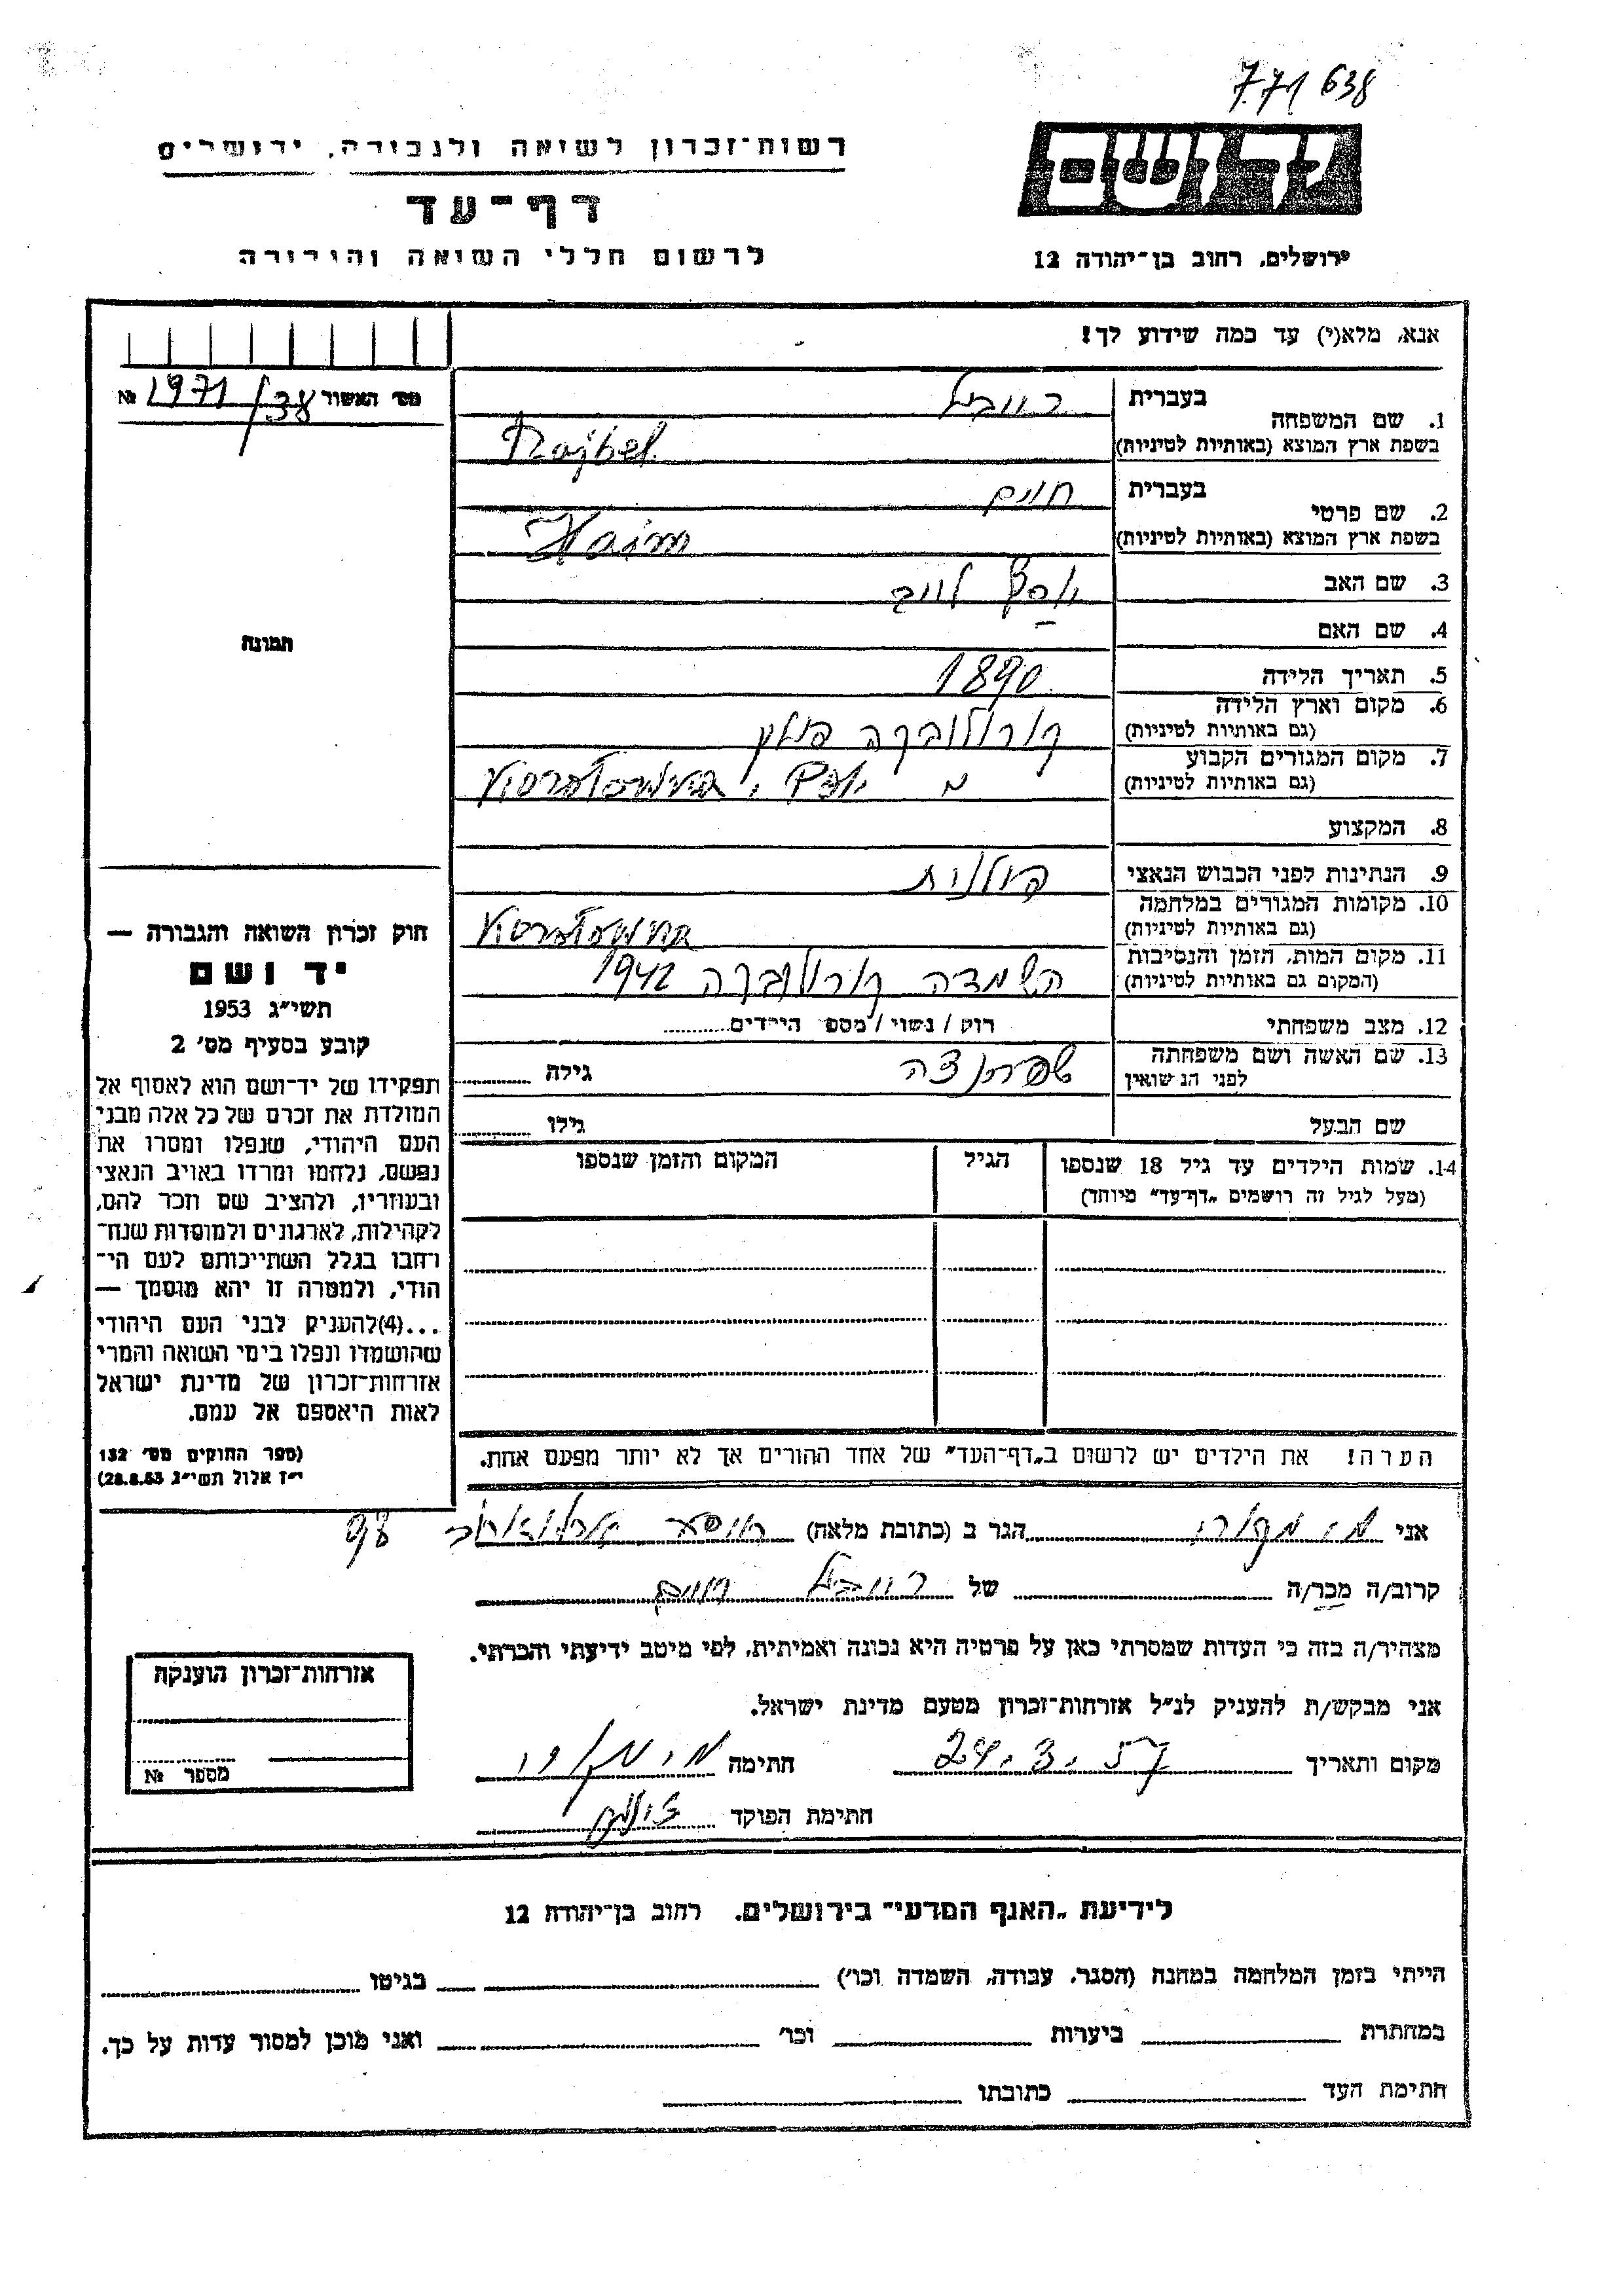 771638
יד ושם
ירושלים, רחוב בן-יהודה 12
רשות-זכרון לשואה ולגבורה, ירושלים
דף-עד
לרשום חללי השואה והגבורה
אנא, מלא(י) עד כמה שידוע לך!
מס' האשור 1971/38 №
תמונה
1. שם המשפחה
בעברית רייבל
בשפת ארץ המוצא (באותיות לטיניות) Rajbel
2. שם פרטי
בעברית חיים
בשפת ארץ המוצא (באותיות לטיניות) Haim
3. שם האב יוסף לייב
4. שם האם –
5. תאריך הלידה 1890
6. מקום וארץ הלידה
(גם באותיות לטיניות) קורולובקה פולין
7. מקום המגורים הקבוע
(גם באותיות לטיניות)
8. המקצוע
9. הנתינות לפני הכבוש הנאצי פולנית
10. מקומות המגורים במלחמה
(גם באותיות לטיניות)
11. מקום המות, הזמן והנסיבות
(המקום גם באותיות לטיניות) השמדה קורולובקה 1942
12. מצב משפחתי רוק / נשוי / מספ' הילדים
13. שם האשה ושם משפחתה
לפני הנשואין שפרינצה גילה
שם הבעל גילו
14. שמות הילדים עד גיל 18 שנספו
(מעל לגיל זה רושמים „דף-עד” מיוחד)
הגיל
המקום והזמן שנספו
הערה! את הילדים יש לרשום ב„דף-העד” של אחד ההורים אך לא יותר מפעם אחת.
חוק זכרון השואה והגבורה —
יד ושם
תשי"ג 1953
קובע בסעיף מס' 2
תפקידו של יד-ושם הוא לאסוף אל
המולדת את זכרם של כל אלה מבני
העם היהודי, שנפלו ומסרו את
נפשם, נלחמו ומרדו באויב הנאצי
ובעוזריו, ולהציב שם וזכר להם,
לקהילות, לארגונים ולמוסדות שנח-
רחבו בגלל השתייכותם לעם הי-
הודי, ולמטרה זו יהא מוסמך —
...(4)להעניק לבני העם היהודי
שהושמדו ונפלו בימי השואה והמרי
אזרחות-זכרון של מדינת ישראל
לאות היאספם אל עמם.
(ספר החוקים מס' 132
י"ז אלול תשי"ג 28.8.53)
אני הגר ב (כתובת מלאה) 98
קרוב/ה מכר/ה של רייבל חיים
מצהיר/ה בזה כי העדות שמסרתי כאן על פרטיה היא נכונה ואמיתית, לפי מיטב ידיעתי והכרתי.
אני מבקש/ת להעניק לנ"ל אזרחות-זכרון מטעם מדינת ישראל.
מקום ותאריך 24.3.57 חתימה
חתימת הפוקד
אזרחות-זכרון הוענקה
מספר №
לידיעת „האגף המדעי” בירושלים, רחוב בן-יהודה 12
הייתי בזמן המלחמה במחנה (הסגר, עבודה, השמדה וכו') בגיטו
במחתרת ביערות וכו' ואני מוכן למסור עדות על כך.
חתימת העד כתובתו